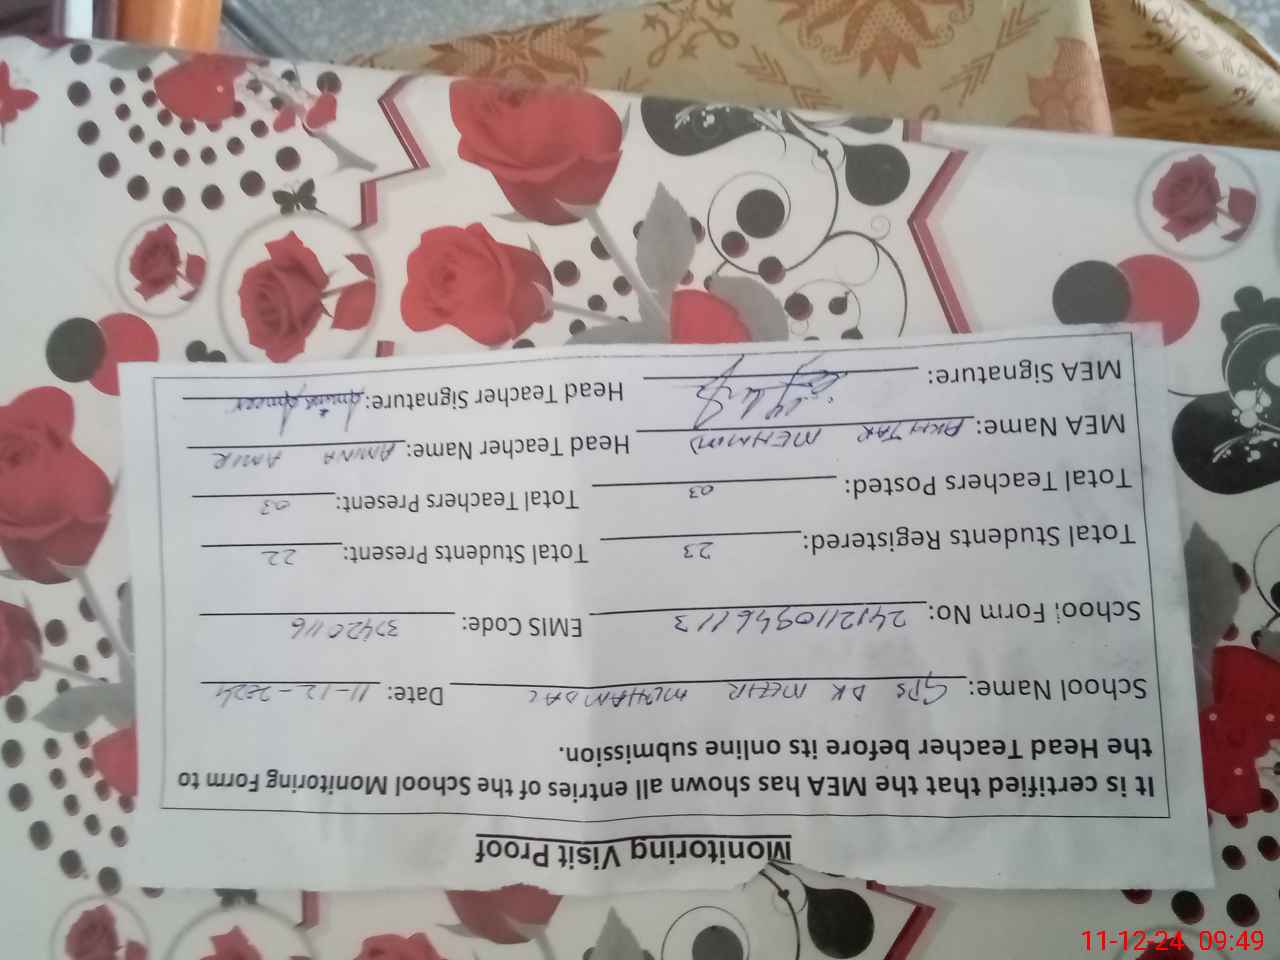 Monitoring Visit Proof
It is certified that the MEA has shown all entries of the School Monitoring Form to
the Head Teacher before its online submission.
School Name: GPS DK MEHR MUHAMMAD Date: 11-12-2024
School Form No: 2412110946113 EMIS Code: 37420116
Total Students Registered: 23 Total Students Present: 22
Total Teachers Posted: 03 Total Teachers Present: 03
MEA Name: AKHTAR MEHMOOD Head Teacher Name: AMINA AMIR
MEA Signature: Head Teacher Signature: Amina Ameer
11-12-24 09:49